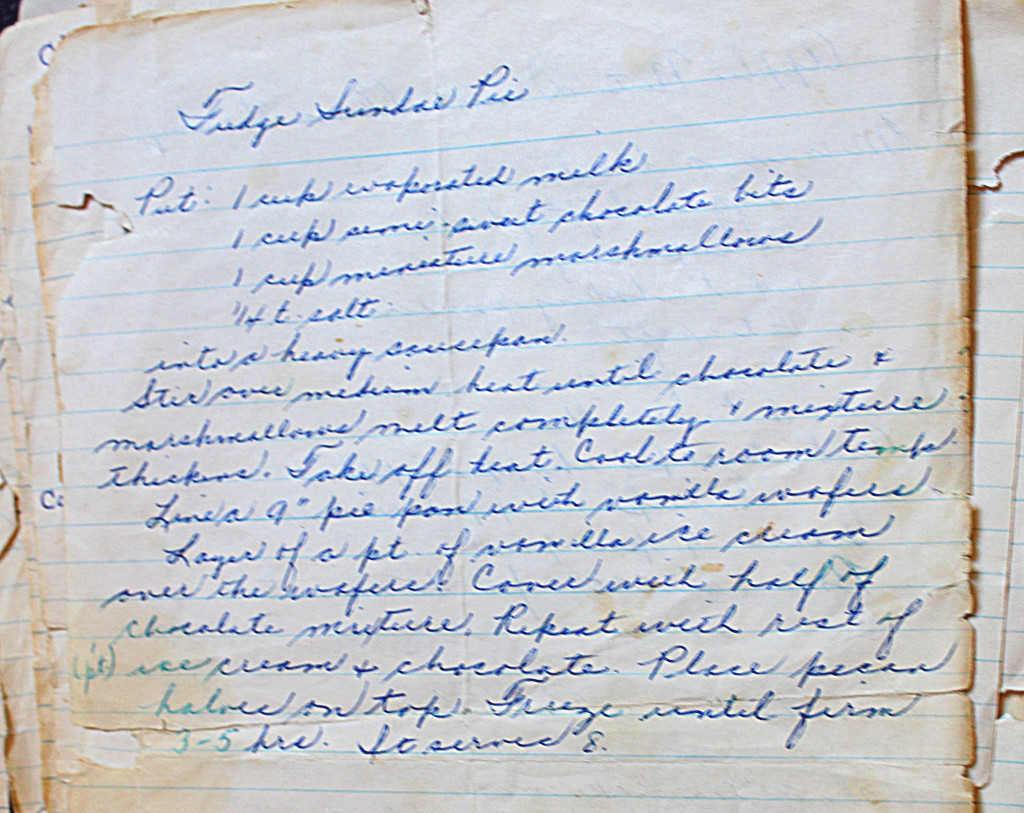 Fudge Sundae Pie
Put: 1 cup evaporated milk
1 cup semi-sweet chocolate bits
1 cup miniature marshmallows
1/4 t. salt
into a heavy saucepan.
Stir over medium heat until chocolate &
marshmallows melt completely & mixture
thickens. Take off heat. Cool to room temp.
Line a 9" pie pan with vanilla wafers
Layer of a pt. of vanilla ice cream
over the wafers. Cover with half of
chocolate mixture. Repeat with rest of
(pt) ice cream & chocolate. Place pecan
halves on top. Freeze until firm
3-5 hrs. It serves 8.